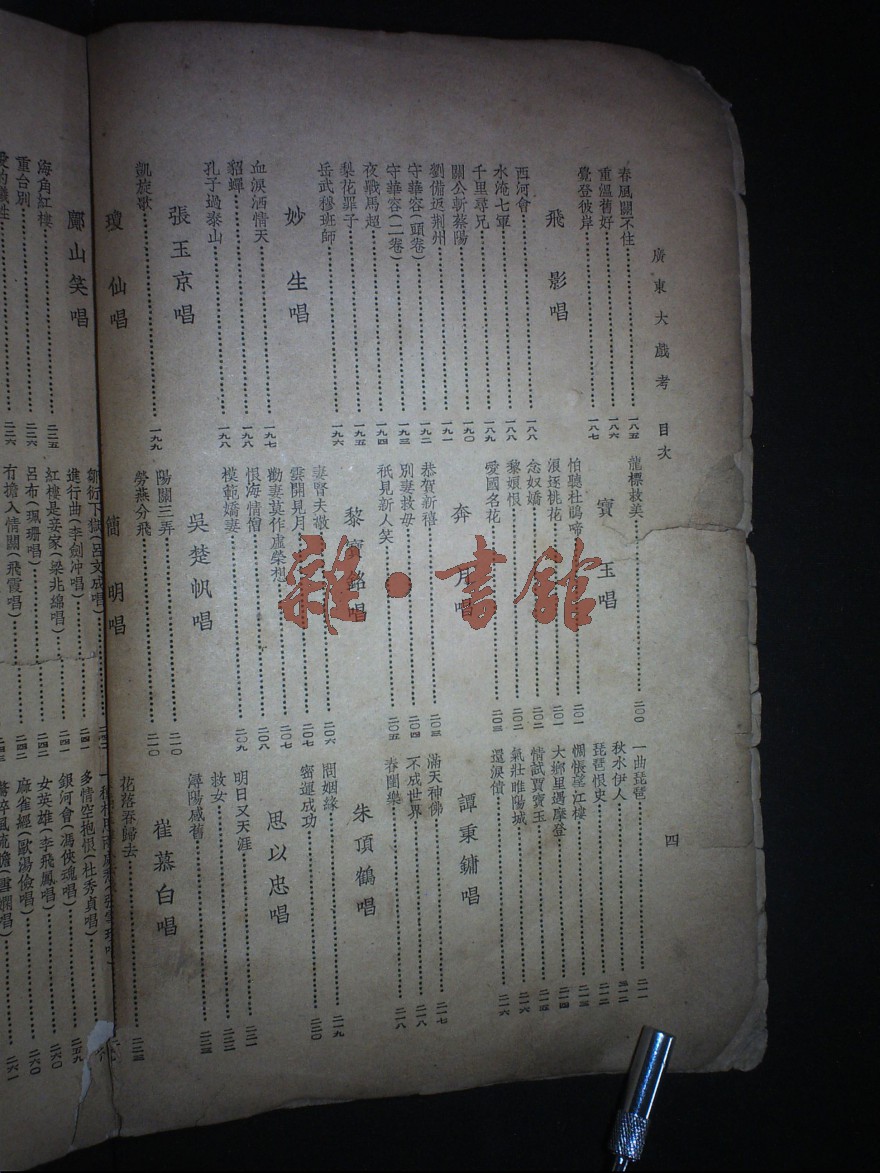 廣東大戲考 目次
四
春風關不住 一八五
重溫舊好 一八六
覺登彼岸 一八七
飛影唱
西河會 一八八
水淹七軍 一八八
千里尋兄 一八九
關公斬蔡陽 一九〇
劉備返荆州 一九一
守華容(頭卷) 一九二
守華容(二卷) 一九三
夜戰馬超 一九四
梨花罪子 一九五
岳武穆班師 一九六
妙生唱
血淚洒情天 一九七
貂蟬 一九八
孔子過泰山 一九八
張玉京唱
凱旋歌 一九九
瓊仙唱
鄺山笑唱
海角紅樓 二二五
重台別 二二六
二二六
龍標救美 二〇〇
寶玉唱
怕聽杜鵑啼 二〇一
浪逐桃花 二〇一
念奴嬌 二〇二
黎娘恨 二〇二
愛國名花 二〇三
奔月唱
恭賀新禧 二〇三
別妻救母 二〇四
祇見新人笑 二〇五
黎寶銘唱
妻賢夫敬 二〇六
雲開見月 二〇七
勸妻莫作虛榮想 二〇七
恨海情僧 二〇八
模範嬌妻 二〇九
吳楚帆唱
陽關三弄 二一〇
勞燕分飛 二一〇
簡明唱
鄒衍下獄(呂文成唱)
進行曲(李劍冲唱) 二四一
紅樓是妾家(梁兆綿唱) 二四一
呂布(珮珊唱) 二四二
冇擔入情關(飛霞唱) 二四二
二四三
一曲琵琶 二一一
秋水伊人 二一二
琵琶恨史 二一二
惆悵菴江樓 二一三
大鄉里遇摩登 二一四
情試賈寶玉 二一五
氣壯睢陽城 二一六
還淚債 二一六
譚秉鏞唱
滿天神佛 二一七
不成世界 二一八
春閨樂 二一八
朱頂鶴唱
問姻緣 二一九
密運成功 二二〇
思以忠唱
明日又天涯 二二一
救女 二二二
潯陽感舊 二二三
崔慕白唱
花落春歸去 二二三
多情空抱恨(杜秀貞唱)
銀河會(馮俠魂唱) 二五九
女英雄(李飛鳳唱) 二六〇
麻雀經(歐湯儉唱) 二六〇
二六一
雜·書館